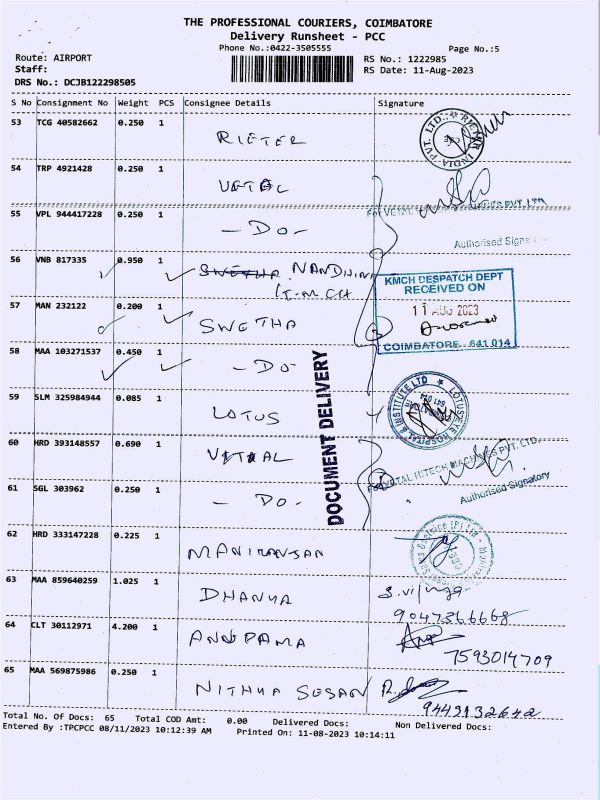 THE PROFESSIONAL COURIERS, COIMBATORE
Delivery Runsheet - PCC
Phone No.:0422-3505555 Page No.:5
Route: AIRPORT RS No.: 1222985
Staff: RS Date: 11-Aug-2023
DRS No.: DCJB122298505
S No Consignment No Weight PCS Consignee Details Signature
53 TCG 40582662 0.250 1 RIETER
54 TRP 4921428 0.250 1 VETAL
55 VPL 944417228 0.250 1 - DO -
Authorised
56 VNB 817335 0.950 1 SWETHA NANDHINI
KMCH DESPATCH DEPT
RECEIVED ON
11 AUG 2023
COIMBATORE - 641 014
57 MAN 232122 0.200 1 SWETHA
58 MAA 103271537 0.450 1 - DO -
DOCUMENT DELIVERY
59 SLM 325984944 0.085 1 LOTUS
60 HRD 393148557 0.690 1 VETAL
For VETAL HITECH MACHINES PVT. LTD.
Authorised Signatory
61 SGL 303962 0.250 1 - DO -
62 HRD 333147228 0.225 1 MANIRANJAN
63 MAA 859640259 1.025 1 DHANYA
64 CLT 30112971 4.200 1 ANUPAMA
7593014709
65 MAA 569875986 0.250 1 NITHYA SESAN
9443132642
Total No. Of Docs: 65 Total COD Amt: 0.00 Delivered Docs: Non Delivered Docs:
Entered By :TPCPCC 08/11/2023 10:12:39 AM Printed On: 11-08-2023 10:14:11